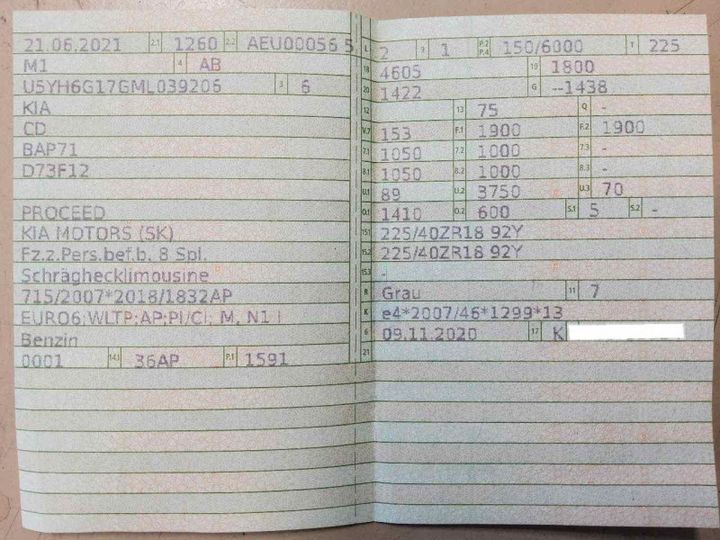 21.06.2021 2.1 1260 2.2 AEU00056 5
M1 4 AB
U5YH6G17GML039206 3 6
KIA
CD
BAP71
D73F12
PROCEED
KIA MOTORS (SK)
Fz.z.Pers.bef.b. 8 Spl.
Schräghecklimousine
715/2007*2018/1832AP
EURO6;WLTP;AP;PI/CI; M, N1 I
Benzin
0001 14.1 36AP P.1 1591
L 2 9 1 P.2 P.4 150/6000 T 225
18 4605 19 1800
20 1422 G --1438
12 13 75 Q -
V.7 153 F.1 1900 F.2 1900
7.1 1050 7.2 1000 7.3 -
8.1 1050 8.2 1000 8.3 -
U.1 89 U.2 3750 U.3 70
O.1 1410 O.2 600 S.1 5 S.2 -
15.1 225/40ZR18 92Y
15.2 225/40ZR18 92Y
15.3 -
R Grau 11 7
K e4*2007/46*1299*13
6 09.11.2020 17 K
21